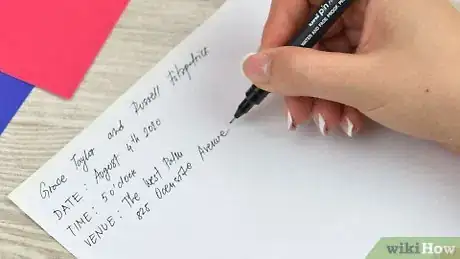 Grace Taylor and Russell Fitzpatrick
DATE: August 4th 2020
TIME: 5 o'clock
VENUE: The West Palm
828 Oceansite Avenue
uni pin
WATER AND FADE PROOF
wikiHow